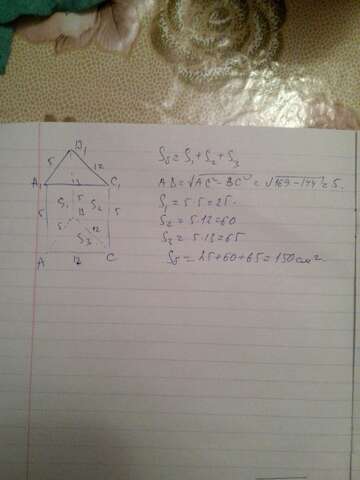 B₁
5 12
A₁ 13 C₁
S₁ 5 S₂
5 B 5
5 12
S₃
A 13 C
Sб = S₁ + S₂ + S₃
AB = √AC² - BC² = √169 - 144 = 5.
S₁ = 5·5 = 25.
S₂ = 5·12 = 60
S₃ = 5·13 = 65
Sб = 25 + 60 + 65 = 150 см²